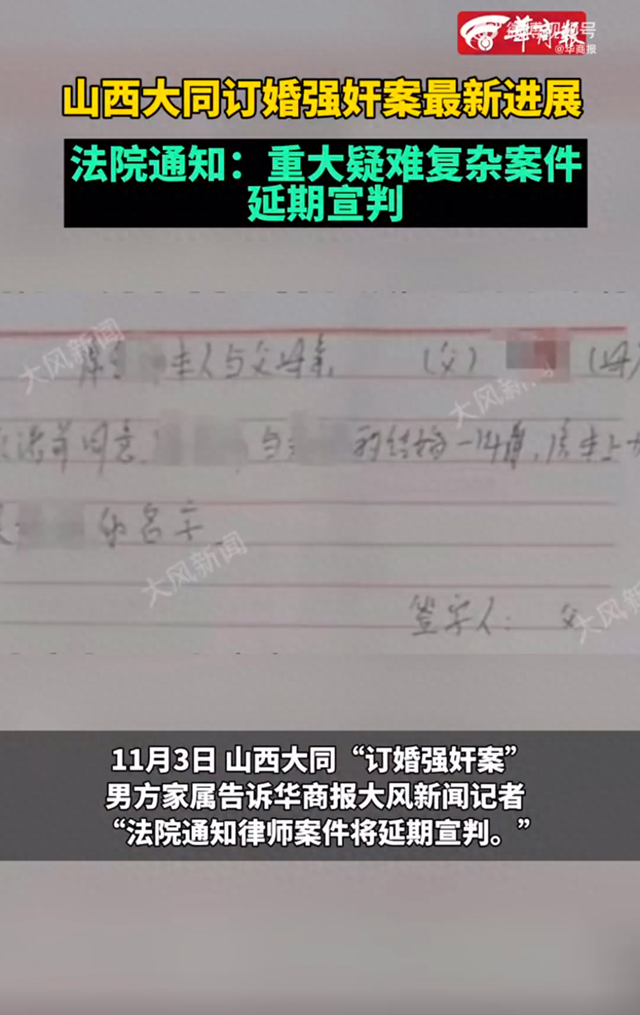 华商报
@华商报
山西大同订婚强奸案最新进展
法院通知：重大疑难复杂案件
延期宣判
大风新闻
本人与父母亲（父）
大风新闻
同意 与 的结婚一件事，房本上
的名字
大风新闻
签字人：父
大风新闻
11月3日 山西大同“订婚强奸案”
男方家属告诉华商报大风新闻记者
“法院通知律师案件将延期宣判。”